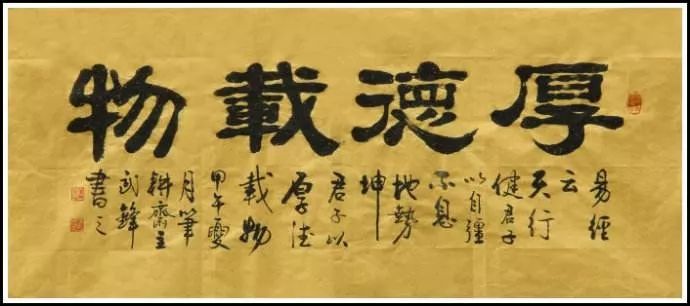 厚德載物
易經
云
天行
健君子
以自彊
不息
地勢
坤
君子以
厚德
載物
甲午夏
月筆
耕齋主
武鋒
書之